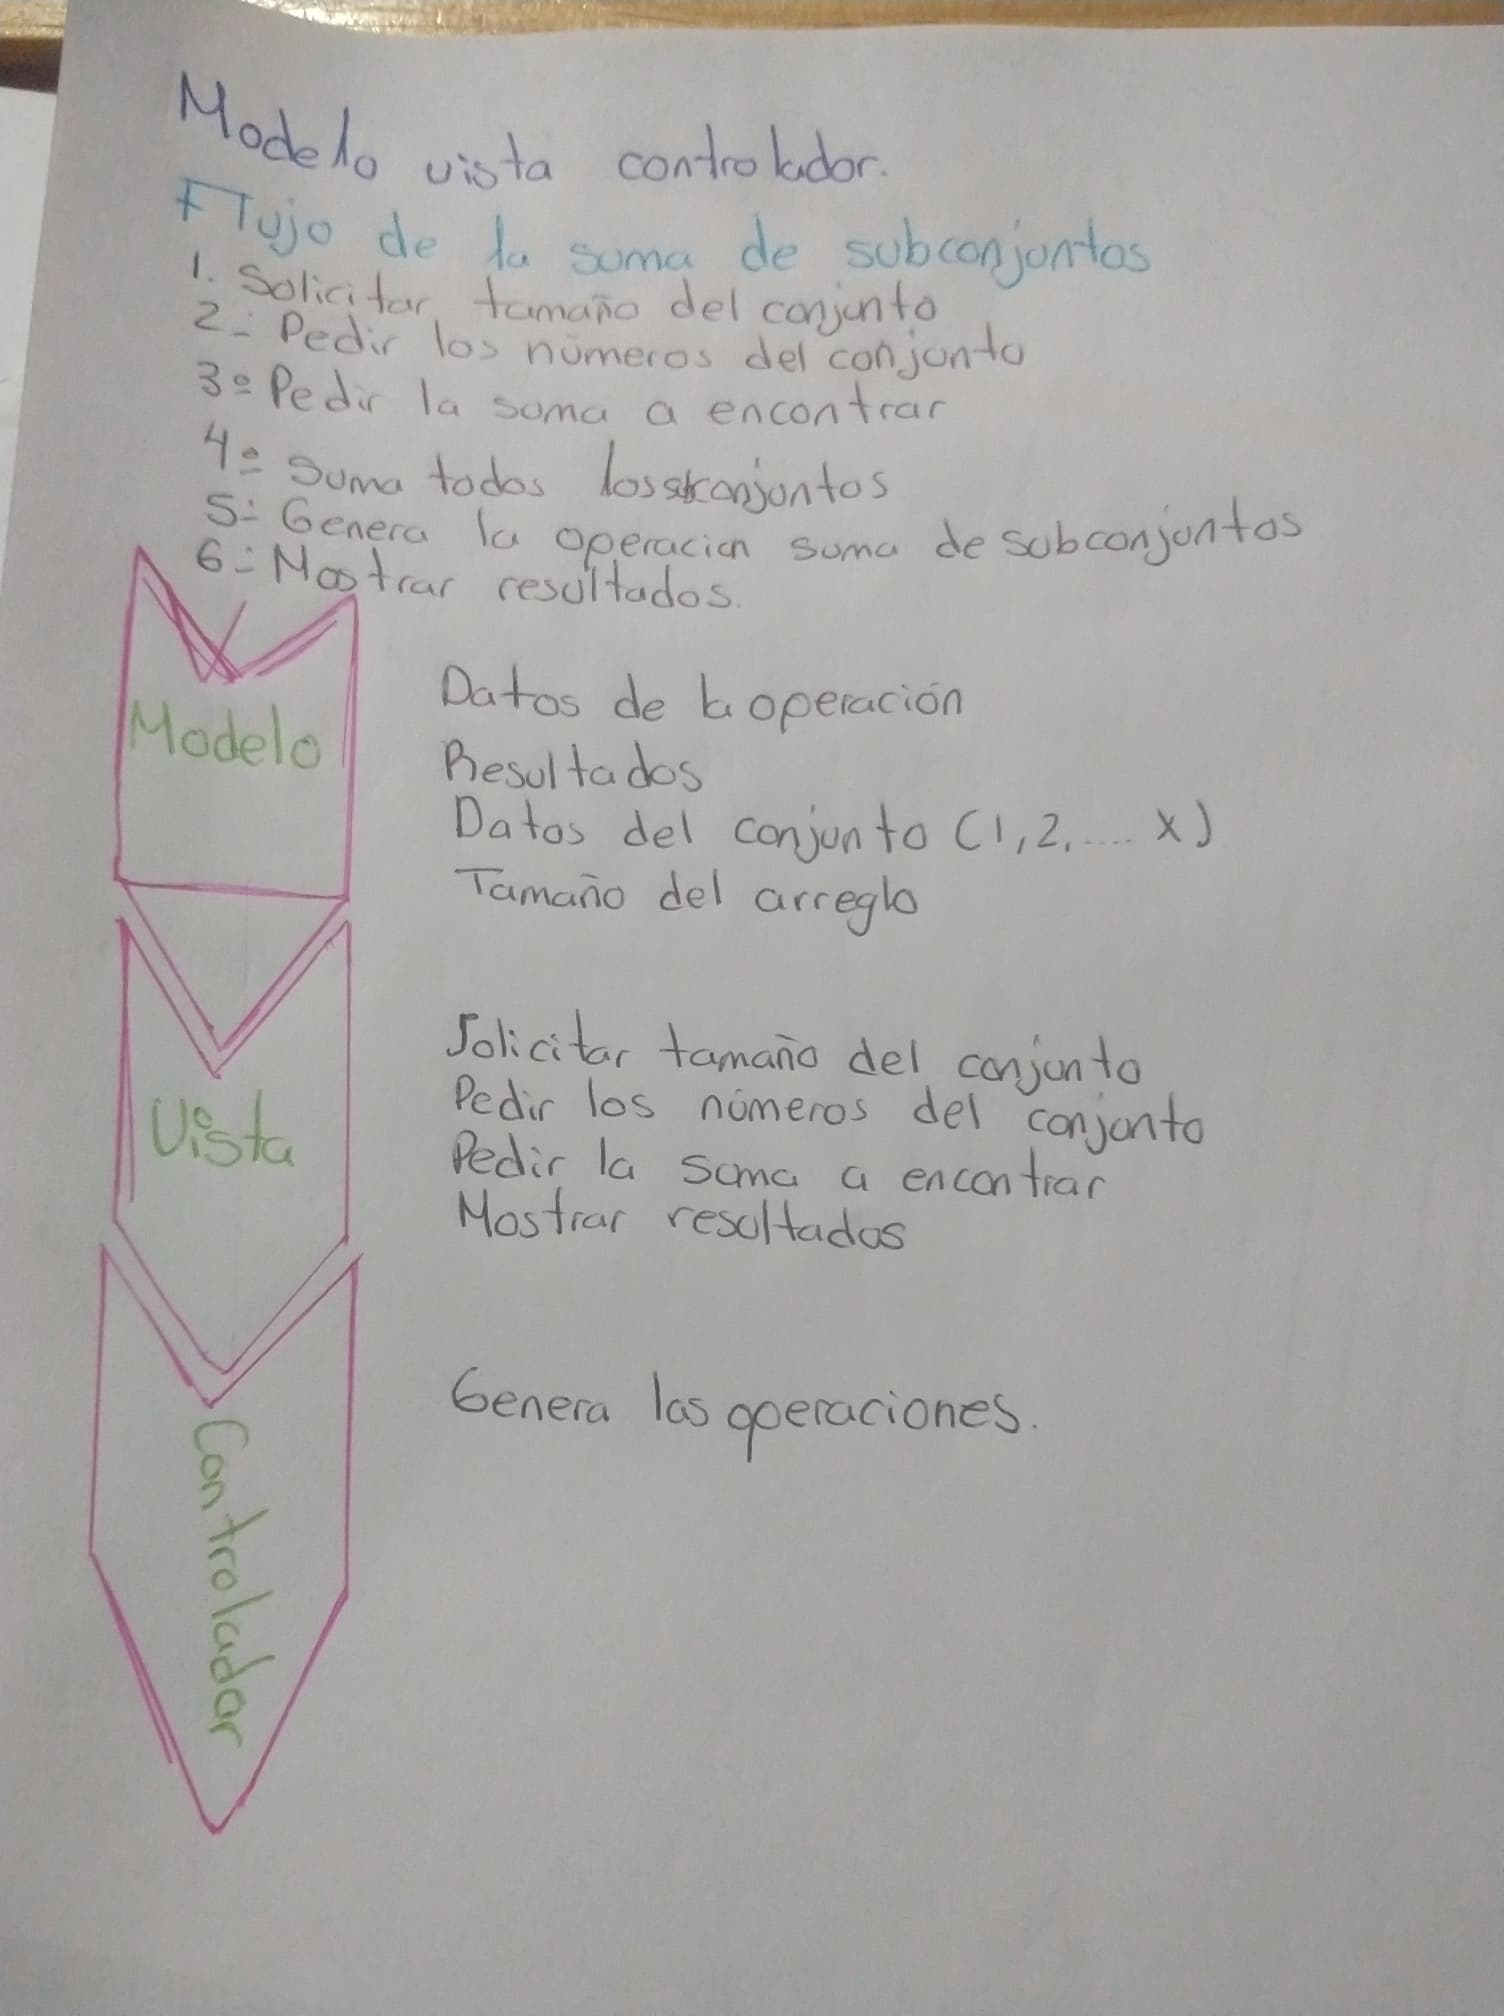 Modelo vista controlador.
Flujo de la suma de subconjuntos
1. Solicitar tamaño del conjunto
2.- Pedir los números del conjunto
3.- Pedir la suma a encontrar
4.- Suma todos los conjuntos
5.- Genera la operacion suma de subconjuntos
6.- Mostrar resultados.
Modelo
Datos de la operación
Resultados
Datos del conjunto (1,2,.... X)
Tamaño del arreglo
Vista
Solicitar tamaño del conjunto
Pedir los números del conjunto
Pedir la suma a encontrar
Mostrar resultados
Controlador
Genera las operaciones.